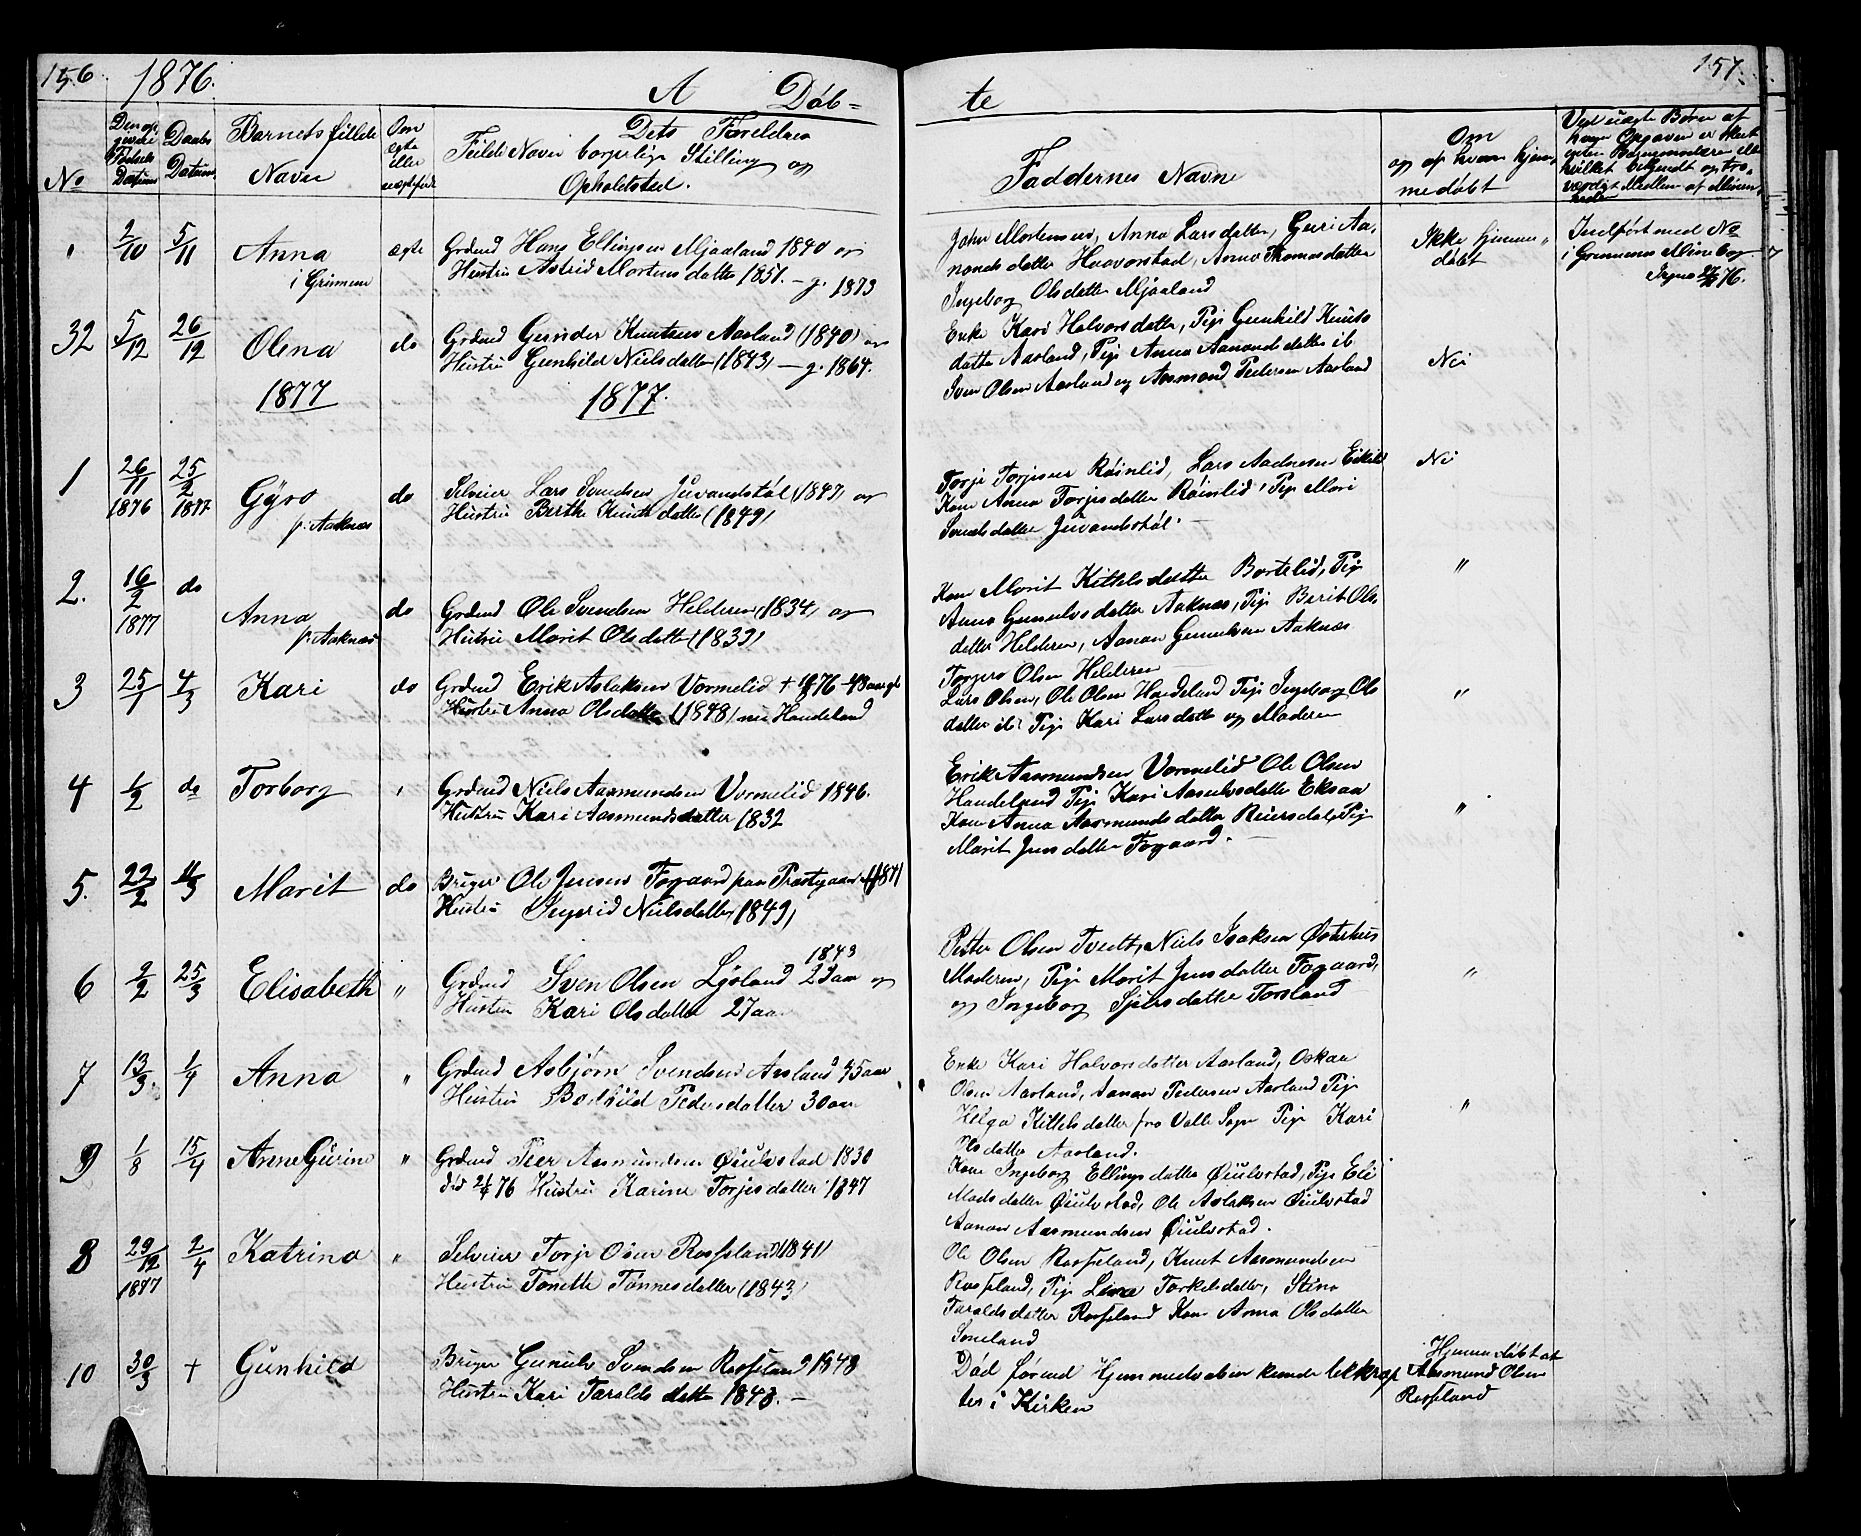 156
1876.
A Døb=
te
157.
No
Den op-
givne
Fødsels
Datum
Daabs
Datum.
Barnets fulde
Navn
Om
egte
eller
uægtefødt
Dets Foreldres
Fulde Navn borgerlige Stilling og
Opholdsted.
Faddernes Navne
Om
og af hvem hjem-
medøbt
Ved uægte Børn af
" 2/10 5/11 Anna
i Grimum
ægte
Grdmd Hans Ellingsen Mjaaland 1840 og
Hustru Astrid Mortensdatter 1851. – g. 1873
John Mortensen, Anna Larsdatter, Guri Aa-
nondsdatter Haaverstad, Anna Thomasdatter
Ingeborg Olsdatter Mjaaland
Ikke hjemme-
døbt
Indført med No 7
32 5/12 26/12 Olena
do
Grdmd Gunder Knutsen Aasland (1840) og
Hustru Gunhild Nielsdatter (1843) – g. 1864.
Enke Kari Halvorsdatter, Pige Gunhild Knuts
datter Aasland, Pige Anna Aanondsdatter ib
Sven Olsen Aasland og Aasmond Pedersen Aasland
Nei
1877
1877.
1 26/11 1876 25/2 1877 Gyro
p. Aaknæs
do
Selveier Lars Svendsen Juvandstøl (1847) og
Hustru Berthe Knutsdatter (1849)
Torje Torjesen Røinlid, Lars Aadnesen Eikild
Kone Anna Torjesdatter Røinlid, Pige Mari
Svendsdatter Juvandstøl. –
Nei
2. 16/2 1877 do Anna
p. Aaknæs
do
Grdmd Ole Svendsen Helderen (1834) og
Hustru Marit Olsdatter (1833)
Kone Marit Kittelsdatter Bortelid, Pige
Anna Gunulvsdatter Aaknæs, Pige Berit Ols
datter Helderen, Aanon Gunulvsen Aaknæs
Torgers Olsen Helderen
"
3 25/1 4/3 Kari
do
Grdmd Erik Aslaksen Vormelid + 76 – 48 aar gl
Hustru Anna Olsdatter (1848) née Handeland
Lars Olsen, Ole Olsen Handeland Pige Ingeborg Ols
datter ib. Pige Kari Larsdatter og Moderen
"
4 1/2 do Torborg
"
Grdmd Niels Aasmundsen Vormelid 1846.
Hustru Kari Aasmundsdatter 1832
Erik Aasmundsen Vormelid Ole Olsen
Handeland Pige Kari Aasulvsdatter Eksaa
Kone Anna Aasmundsdatter Reiersdal, Pige
Marit Jensdatter Fogaard. –
"
5. 22/2 11/3 Marit
do
Bruger Ole Jensen Fogaard paa Præstgaard
Hustru Sigrid Nielsdatter 1849)
6 2/2 25/3 Elisabeth
"
1843
Grdmd Sven Olsen Ljosland 23 aar og
Hustru Kari Olsdatter 27 aar
Petter Olsen Tveit, Niels Isaksen Østerhus
Moderen, Pige Marit Jensdatter Fogaard,
og Ingeborg Sjursdatter Torsland
"
7 13/3. 1/4 Anna
"
Grdmd Asbjørn Svendsen Aasland 45 aar
Hustru Bothild Pedersdatter 30 aar
Enke Kari Halvorsdatter Aasland, Oskar
Olsen Aasland, Aanon Pedersen Aasland Pige
Helga Kittelsdatter fra Valle Sogn Pige Kari
Olsdatter Aasland.
"
9 1/8 15/4 Anne Gurine
"
Grdmd Peer Aasmundsen Øiulvstad 1830
død 76 Hustru Karine Torjesdatter 1847
Kone Ingeborg Ellingsdatter Øiulvstad, Pige Eli
Madsdatter Øiulvstad, Ole Aslaksen Øiulvstad
Aanon Aasmundsen Øiulvstad.
8 29/12 1877 2/4 Katrina
"
Selveier Torje Osen Rosseland (1841)
Hustru Tonette Tønnesdatter (1843)
Ole Olsen Rosseland, Knut Aasmundsen
Rosseland, Pige Lina Torkelsdatter, Stina
Taraldsdatter Rosseland Kone Anna Olsdatter
Soneland
10 30/3 + Gunhild
Bruger Gunulv Svendsen Rosseland 1848
Hustru Kari Taraldsdatter 1843. –
Død førend Hjemmedaaben kunde bekræf
tes i Kirken
Hjemmedøbt af
Aasmund Olsen
Rosseland